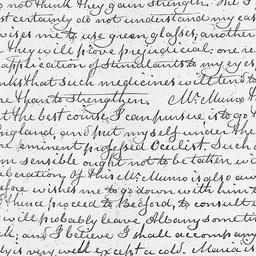 o not think they gain strength. The
st certainly do not understand my cas
vises me to use green glasses, another
they will prove prejudicial; one re
application of Stimulants to my eyes,
nks that such medicines will tend to
re than to strengthen. Mr. Munro th
t the best course I can pursue, is to go t
ngland, and put myself under the
e eminent professed Oculist. Such a
m sensible ought not to be taken wi
iberation. Of this Mr. Munro is also aw
efore wishes me to go down with him t
thence proceed to Bedford, to consult w
will probably leave Albany sometim
k; and I believe I shall accompany
dy is very well except a cold. Maria is